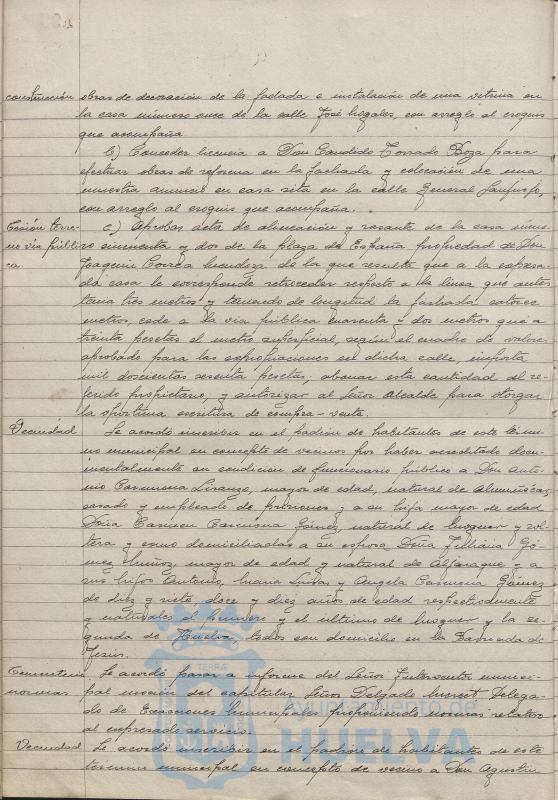 construcción obras de decoración de la fachada e instalación de una vitrina en
la casa número once de la calle José Nogales, con arreglo al croquis
que acompaña
b) Conceder licencia a Don Candido Torrado Boza para
efectuar obras de reforma en la fachada y colocación de una
muestra anuncio en casa sita en la calle General Sanjurjo,
con arreglo al croquis que acompaña.
Cesión terre- c) Aprobar acta de alineación y rasante de la casa núme-
no vía públi- ro cincuenta y dos de la plaza de España propiedad de Don
ca. Joaquin Correa Mendoza de la que resulta que a la expresa-
da casa le corresponde retroceder respecto a la línea que antes
tenía tres metros y teniendo de longitud la fachada catorce
metros, cede a la vía pública cuarenta y dos metros que a
treinta pesetas el metro superficial, según el cuadro de valores
aprobado para las expropiaciones en dicha calle, importa
mil doscientas sesenta pesetas; abonar esta cantidad al re-
ferido propietario, y autorizar al Señor Alcalde para otorgar
la oportuna escritura de compra-venta.
Vecindad Se acordó inscribir en el padrón de habitantes de este térmi-
no municipal en concepto de vecinos por haber acreditado docu-
mentalmente su condición de funcionario público a Don Anto-
nio Carmona Liranzo, mayor de edad, natural de
casado y empleado de prisiones y a su hija mayor de edad
Doña Carmen Carmona Gómez, natural de Moguer y sol-
tera y como domiciliadas a su esposa Doña Gó-
mez Muñoz mayor de edad y natural de Alfarague y a
sus hijos Antonio, Maria Luisa y Angela Carmona Gómez
de diez y siete, doce y diez años de edad respectivamente
y naturales el primero y el ultimo de Moguer y la se-
gunda de Huelva todos con domicilio en la Barriada de
Jesús.
Cementerio Se acordó pasar a informe del Señor Interventor munici-
normas pal moción del capitular Señor Delgado Delega-
do de municipales proponiendo normas relativas
al expresado servicio.
Vecindad Se acordó inscribir en el padrón de habitantes de este
término municipal en concepto de vecino a Don Agustin
Ayuntamiento de
HUELVA